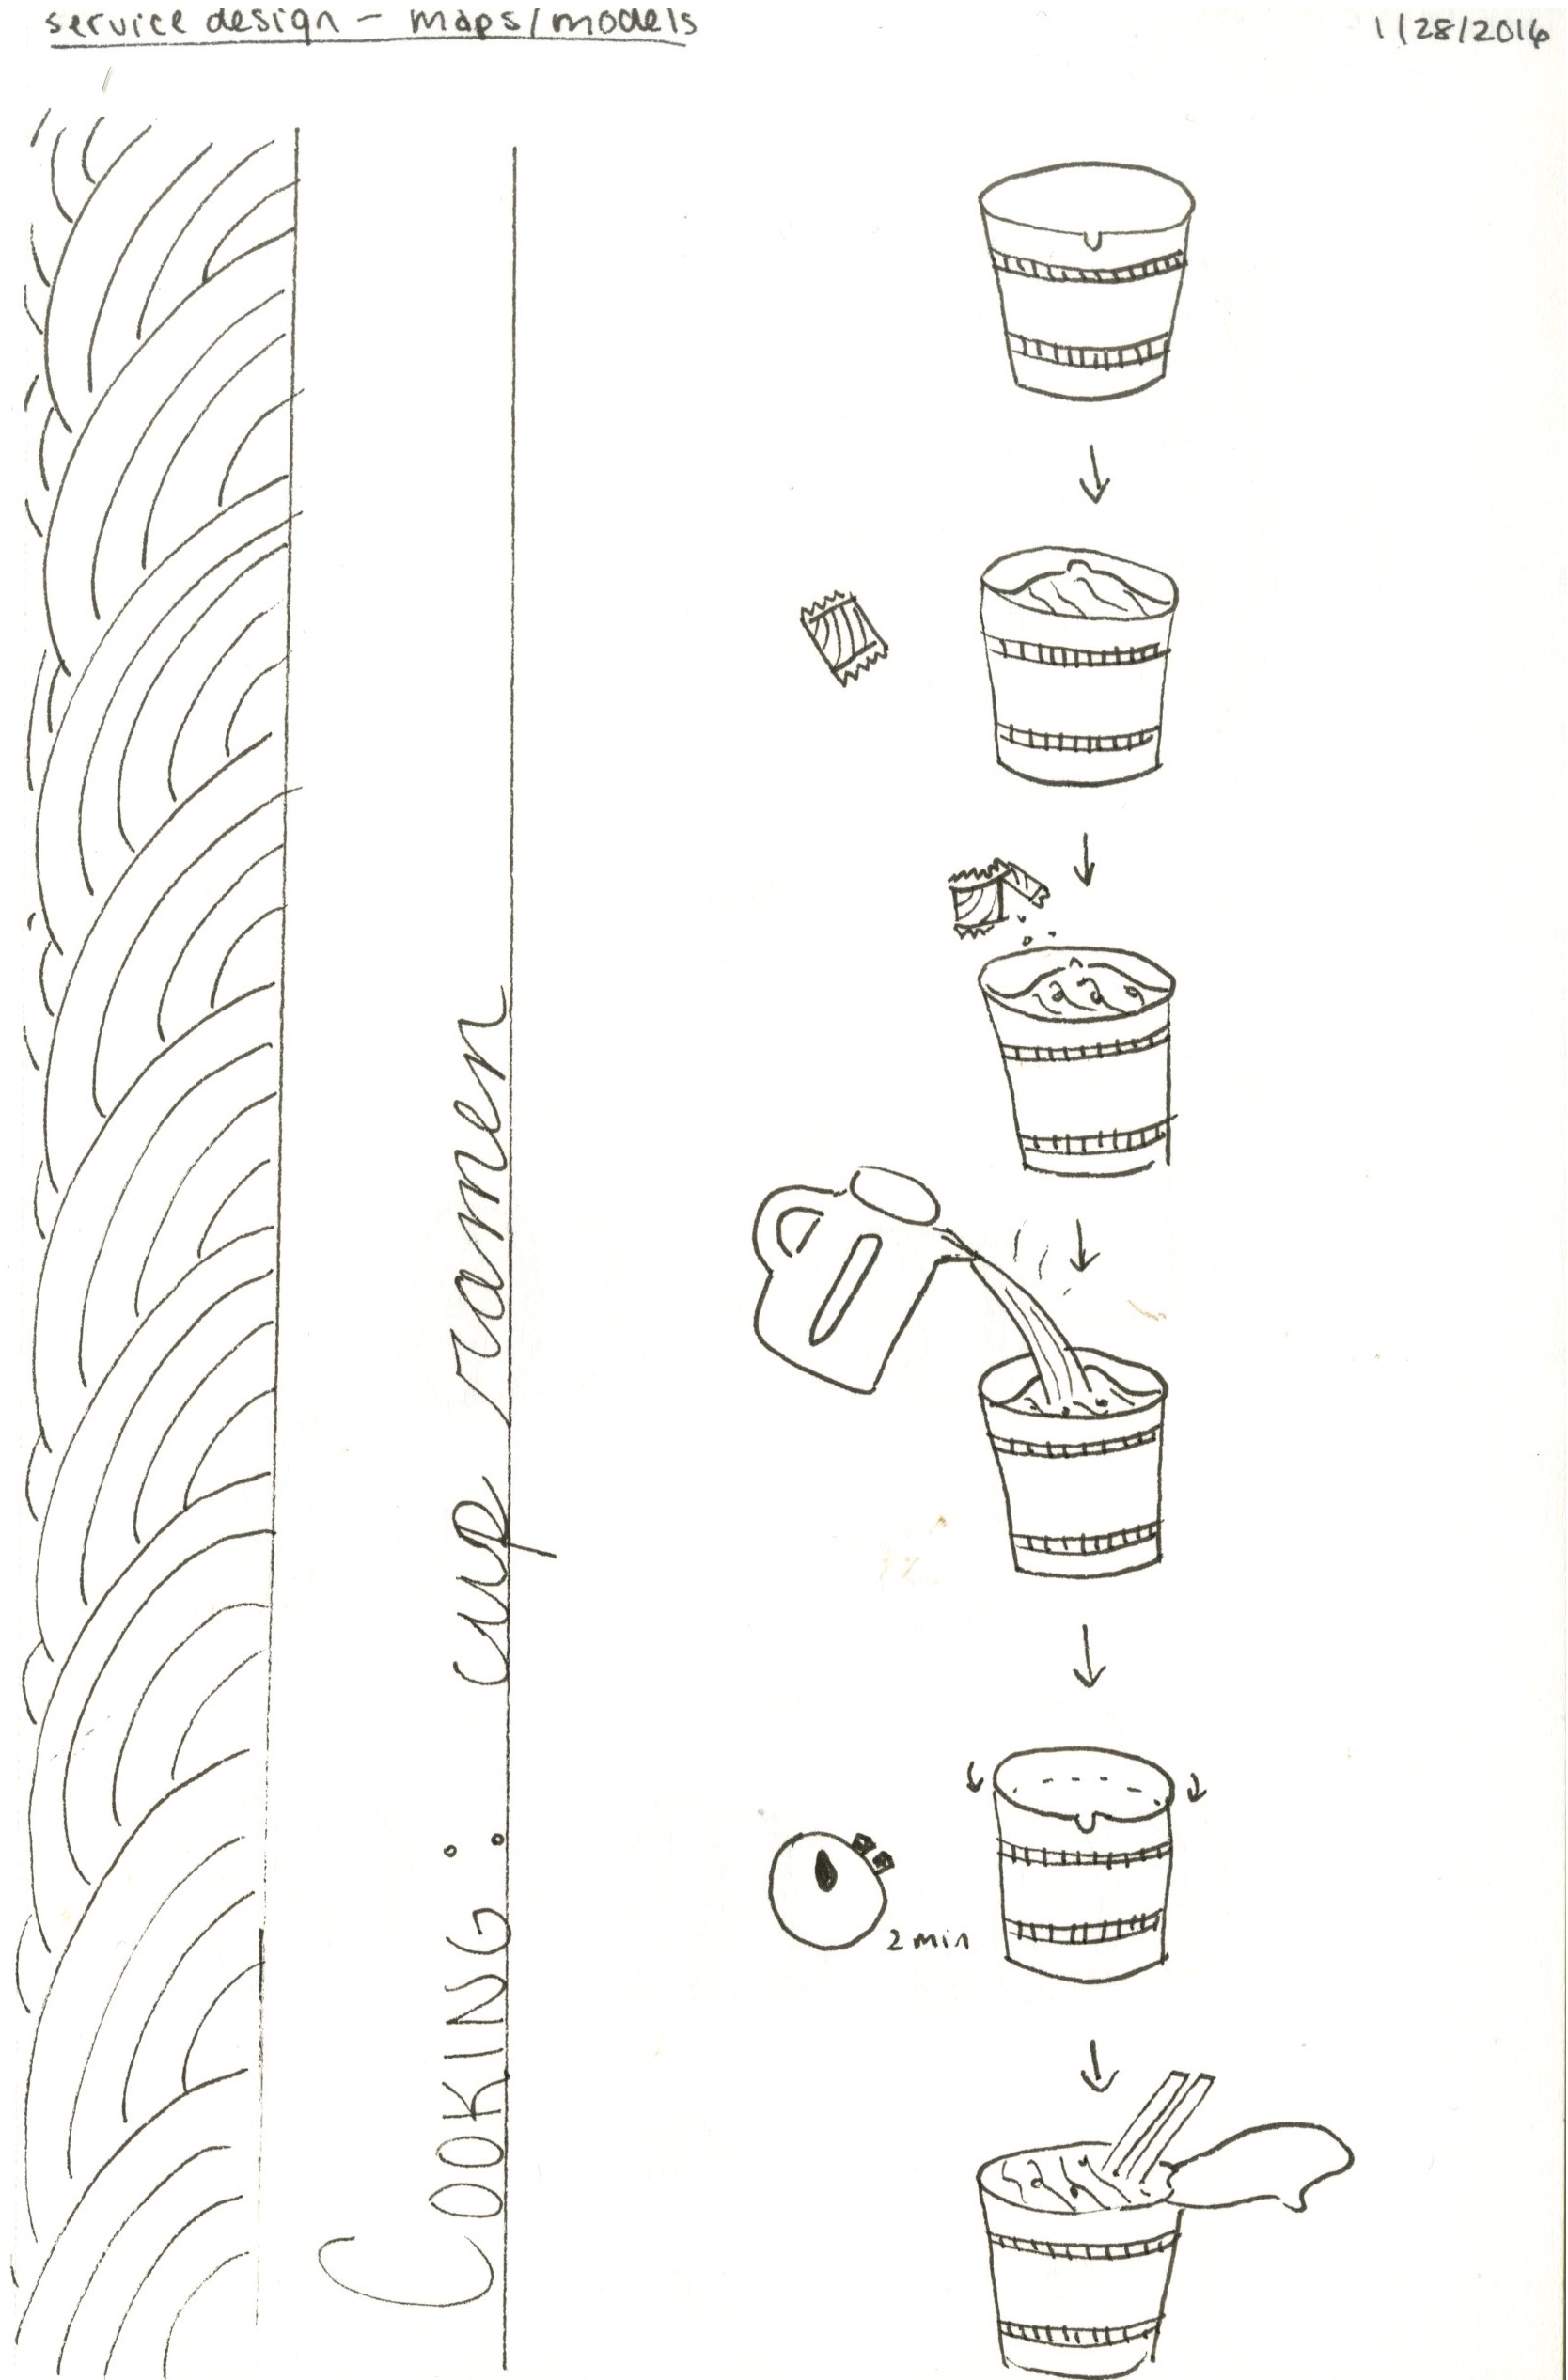 service design - maps/models
1/28/2016
COOKING: cup ramen
2 min